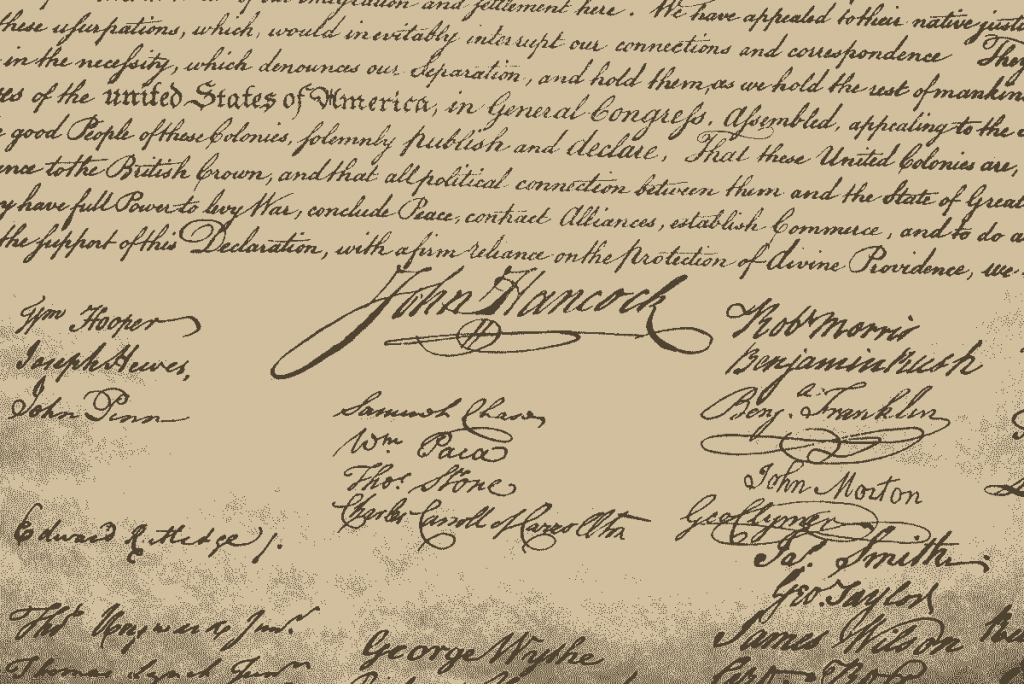 our emigration and settlement here. We have appealed to their native
these usurpations, which, would inevitably interrupt our connections and correspondence They
in the necessity, which denounces our Separation, and hold them, as we hold the rest of
of the united States of America, in General Congress, Assembled, appealing to the
good People of these Colonies, solemnly publish and declare, That these United Colonies are,
to the British Crown, and that all political connection between them and the State of Great
have full Power to levy War, conclude Peace, contract Alliances, establish Commerce, and to do
the support of this Declaration, with a firm reliance on the protection of divine Providence, we
John Hancock
Wm Hooper
Joseph Hewes,
John Penn
Edward Rutledge /.
Thos Heyward Junr.
Thomas Lynch Junr
Samuel Chase
Wm. Paca
Thos. Stone
Charles Carroll of Carrollton
George Wythe
Robt Morris
Benjamin Rush
Benja. Franklin
John Morton
Geo Clymer
Jas. Smith.
Geo. Taylor
James Wilson